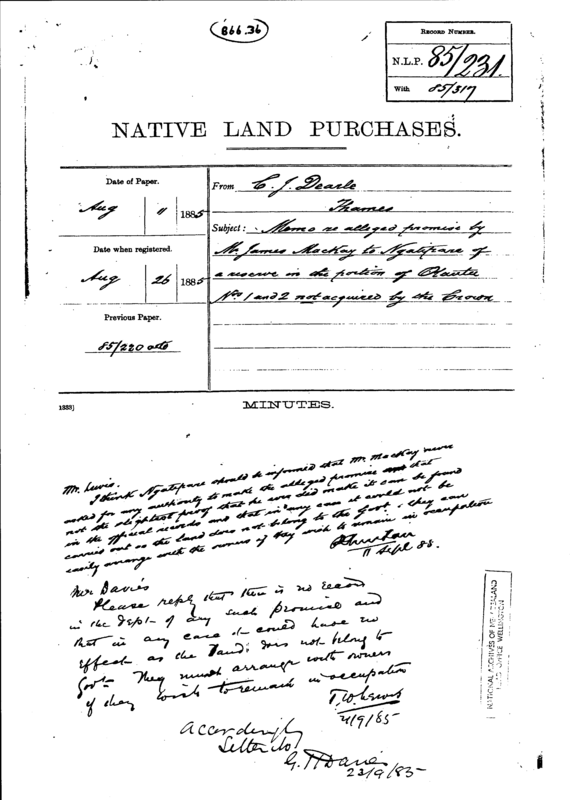 866.36
RECORD NUMBER.
N.L.P. 85/231.
With 85/317
NATIVE LAND PURCHASES.
Date of Paper.
Aug 11 1885
Date when registered.
Aug 26 1885
Previous Paper.
85/220
From C. J. Dearle
Thames
Subject: Memo re alleged promise by
Mr. James MacKay to Ngatipare of
a reserve in the portion of
Nos 1 and 2 not acquired by the Crown
1333]
MINUTES.
Mr. Lewis.
I think Ngatipare should be informed that Mr. MacKay never
asked for any authority to make the alleged promise and that
not the slightest proof that he ever did make it can be found
in the official records and that in any case it could not be
carried out as the land does not belong to the Govt. They can
easily arrange with the owners if they wish to remain in occupation
11 Sept 85.
Mr Davies
Please reply that there is no record
in the Dept. of any such promise and
that in any case it could have no
effect as the land does not belong to
Govt. They must arrange with owners
if they wish to remain in occupation
T.W. Lewis
/9/85
Accordingly
Letter
G. H Davies
23/9/85
NATIONAL ARCHIVES OF NEW ZEALAND
HEAD OFFICE WELLINGTON